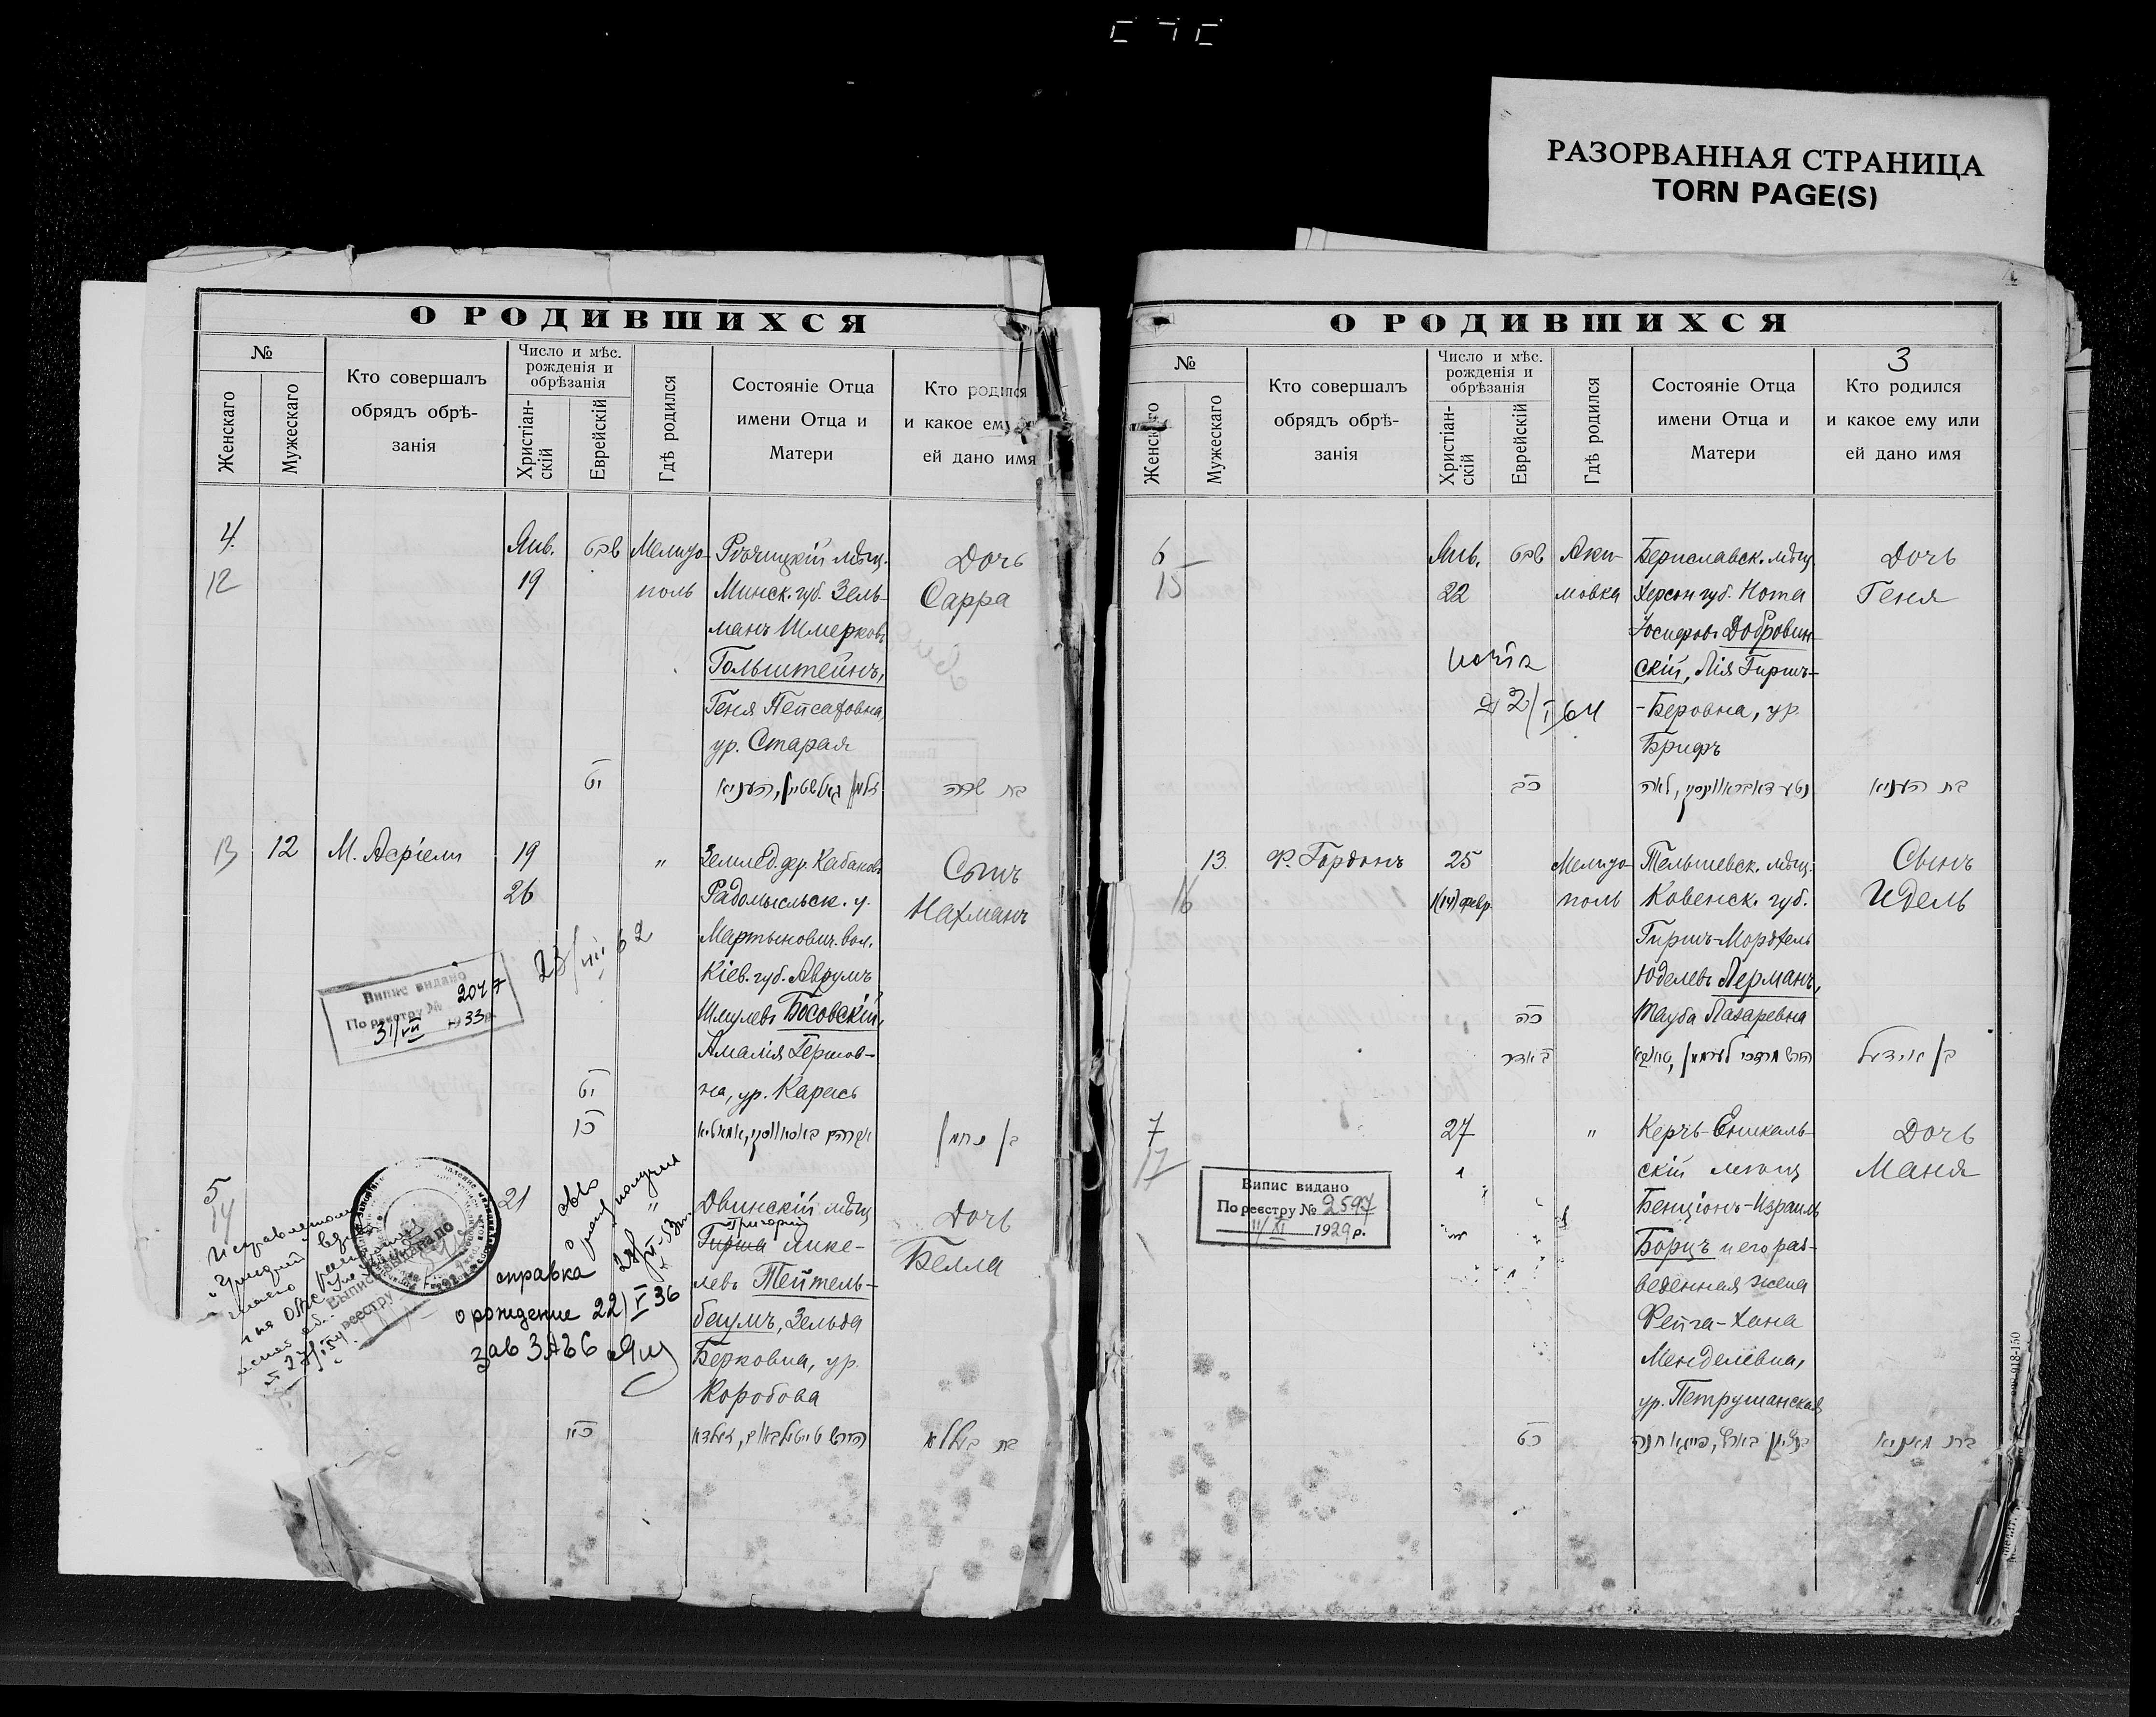 РАЗОРВАННАЯ СТРАНИЦА
TORN PAGE(S)
О РОДИВШИХСЯ
№
Женскаго
Мужескаго
Кто совершалъ
обрядъ обрѣ-
занія
Число и мѣс.
рожденія и
обрѣзанія
Христіан-
скій
Еврейскій
Гдѣ родился
Состояніе Отца
имени Отца и
Матери
Кто родился
и какое ему
ей дано имя
4
12
Янв.
19
טבת
Мелито-
поль
Рѣчицкій мѣщ.
Минск. губ. Зель-
манъ Шмерковъ
Гольштейнъ,
Геня Пейсаховна,
ур. Старая
Дочь
Сарра
יט
בת שרה
13
12
М. Асріели
19
26
"
Землед. дер. Кабановъ
Радомысльск. у.
Мартынович. вол.
Кіев. губ. Аврумъ
Шмулевъ Босовскій,
Амалія Гершов-
на, ур. Карась
Сынъ
Нахманъ
יט
כו
בן נחמן
23/VIII 62
Випис видано
По реєстру № 2047
31/VII 1933р.
5
14
21
"
Двинскій мѣщ.
Григорій
Гирша Мике-
левъ Тейтель-
баумъ, Зельда
Берковна, ур.
Коробова
Дочь
Белла
כא
בת בעלא
справка
о рождение 22/V 36
зав ЗАГС
О РОДИВШИХСЯ
3
№
Женскаго
Мужескаго
Кто совершалъ
обрядъ обрѣ-
занія
Число и мѣс.
рожденія и
обрѣзанія
Христіан-
скій
Еврейскій
Гдѣ родился
Состояніе Отца
имени Отца и
Матери
Кто родился
и какое ему или
ей дано имя
6
15
Янв.
22
טבת
Аки-
мовка
Бериславск. мѣщ.
Херсон губ. Нота
Іосифовъ Добровин-
скій, Лія Гиршъ-
-Беровна, ур.
Брифъ
Дочь
Геня
2/I 64
כב
בת העניא
13
16
Ф. Гордонъ
25
1(14) февр.
Мелито-
поль
Тельшевск. мѣщ.
Ковенск. губ.
Гиршъ-Мордхель
Юделевъ Лерманъ,
Тауба Лазаревна
Сынъ
Идель
כה
ב אדר
בן אידעל
7
17
27
"
Керчь-Еникаль-
скій мѣщ
Бенціонъ-Израиль
Борцъ и его раз-
веденная жена
Фейга-Хана
Менделевна,
ур. Петрушанская
Дочь
Маня
Випис видано
По реєстру № 2597
11/XI 1929 р.
כט
בת מאניא